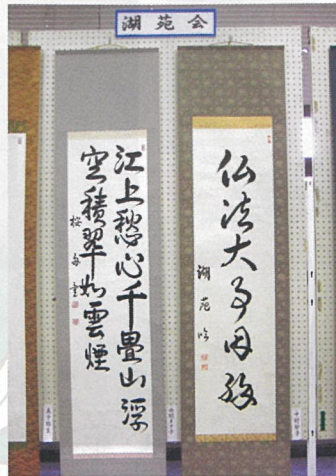 湖苑会
仏法大事因縁
湖苑
江上愁心千畳山浮
空積翠如雲煙
桜舟書